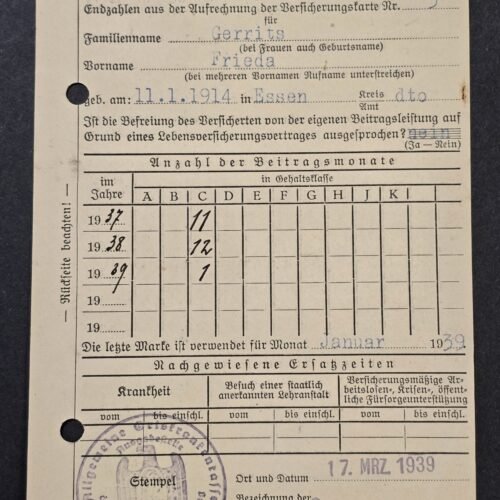 Endzahlen aus der Aufrechnung der Versicherungskarte Nr.
für
Familienname Gerrits
(bei Frauen auch Geburtsname)
Vorname Frieda
(bei mehreren Vornamen Rufname unterstreichen)
geb. am: 11.1.1914 in Essen Kreis dto
Amt
Ist die Befreiung des Versicherten von der eigenen Beitragsleistung auf
Grund eines Lebensversicherungsvertrages ausgesprochen? nein
(Ja — Nein)
Anzahl der Beitragsmonate
im Jahre
in Gehaltsklasse
A B C D E F G H J K
1937 11
1938 12
1939 1
19
19
Die letzte Marke ist verwendet für Monat Januar 1939
Nachgewiesene Ersatzzeiten
Krankheit
Besuch einer staatlich
anerkannten Lehranstalt
Versicherungsmäßige Ar-
beitslosen-, Krisen-, öffent-
liche Fürsorgeunterstützung
vom bis einschl. vom bis einschl. vom bis einschl.
Allgemeine Ortskrankenkasse
Stempel
Ort und Datum 17. MRZ. 1939
Bezeichnung der
— Rückseite beachten! —